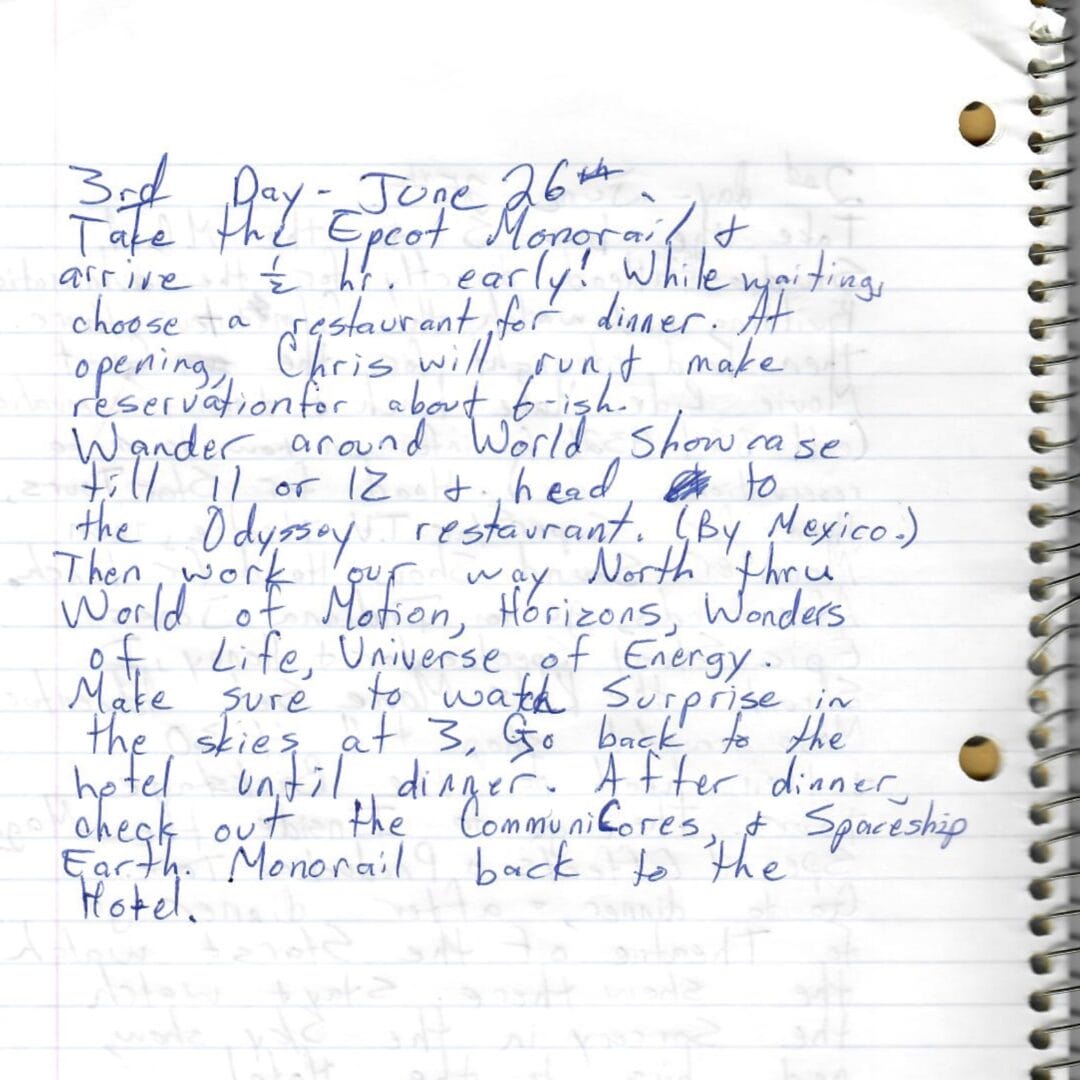 3rd Day - June 26th.
Take the Epcot Monorail &
arrive ½ hr. early! While waiting,
choose a restaurant for dinner. At
opening, Chris will run & make
reservation for about 6-ish.
Wander around World Showcase
till 11 or 12 & head to
the Odyssey restaurant. (By Mexico.)
Then work our way North thru
World of Motion, Horizons, Wonders
of Life, Universe of Energy.
Make sure to watch Surprise in
the skies at 3. Go back to the
hotel until dinner. After dinner,
check out the CommuniCores, & Spaceship
Earth. Monorail back to the
Hotel.